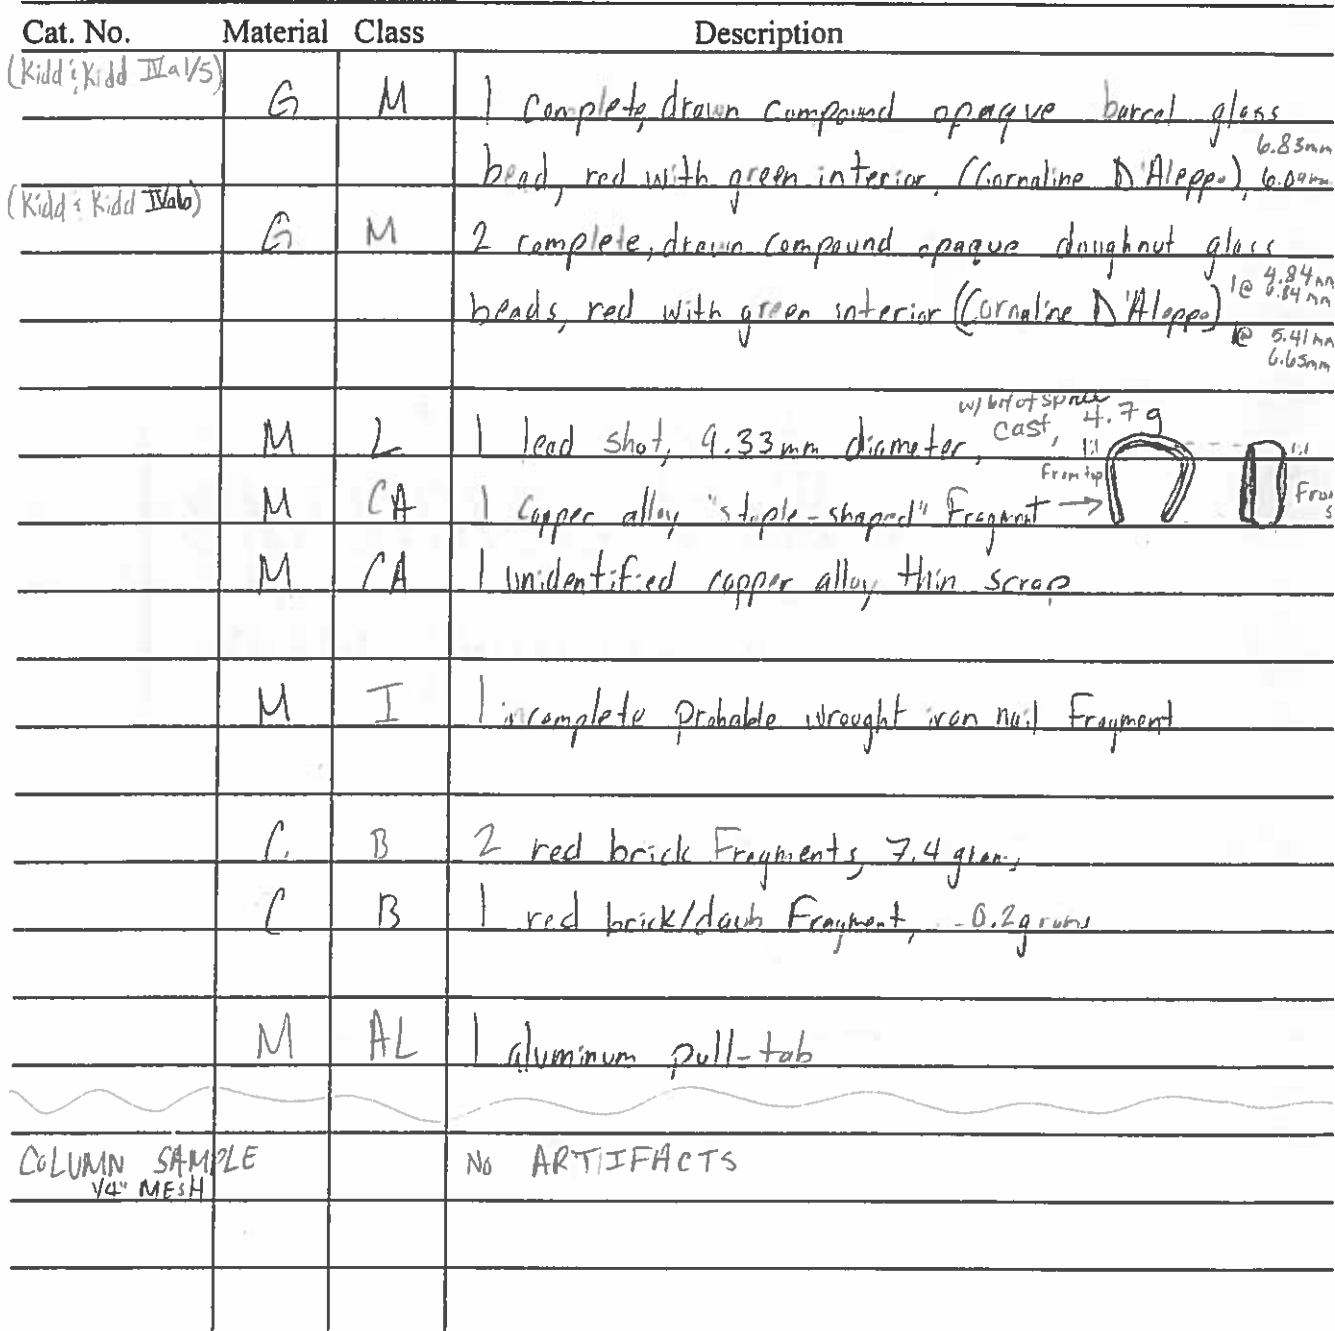 Cat. No. Material Class Description
(Kidd & Kidd IVa1/5)
G M 1 complete, drawn compound opaque barrel glass
6.83mm
bead, red with green interior. (Cornaline D'Aleppo), 6.09mm
(Kidd & Kidd IVa6)
G M 2 complete, drawn compound opaque doughnut glass
1@ 4.84mm
6.84mm
beads, red with green interior (Cornaline D'Aleppo)
1@ 5.41mm
6.65mm
w/ bit of sprue
M L 1 lead shot, 9.33mm diameter, cast, 4.7g
1:1 1:1
From top
M CA 1 Copper alloy "staple-shaped" Fragment →
M CA 1 unidentified copper alloy thin scrap
M I 1 incomplete Probable wrought iron nail Fragment
C B 2 red brick Fragments, 7.4 grams
C B 1 red brick/daub Fragment, 0.2grams
M AL 1 aluminum pull-tab
COLUMN SAMPLE No ARTIFACTS
1/4" MESH